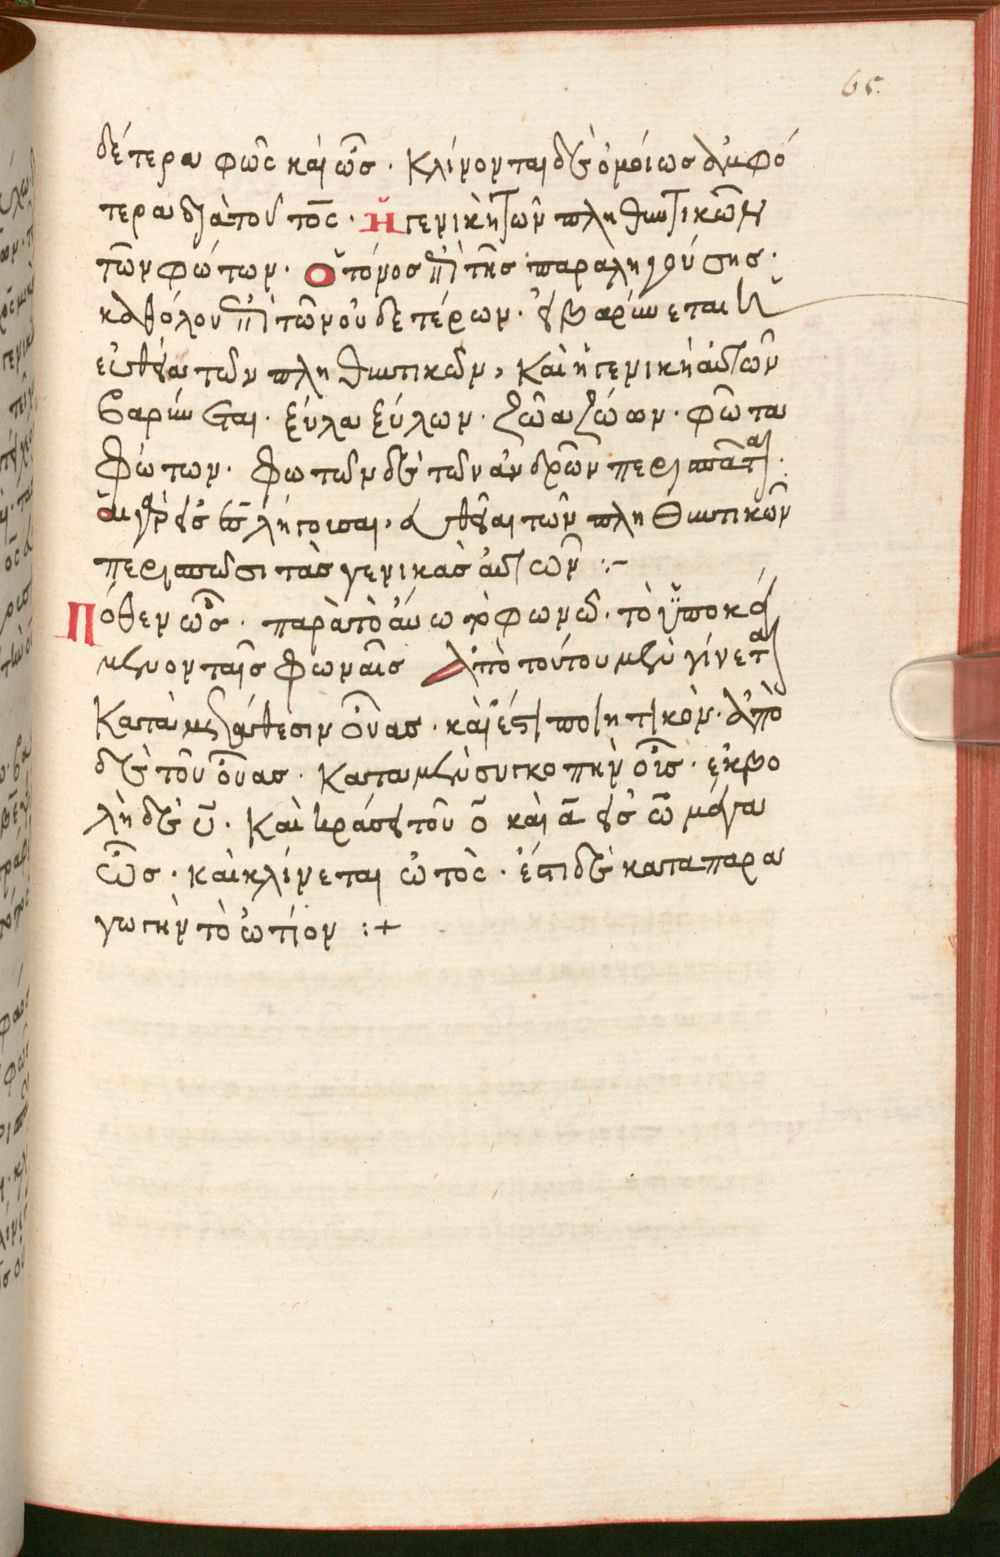 65
δέτερα φῶς καὶ ὦς · Κλίνονται δὲ ὁμοίως ἀμφό
τερα διὰ τοῦ τος · ἡ γενικὴ τῶν πληθυντικῶν
τῶν φώτων · ὁ τόνος ἐπὶ τῆς παραληγούσης ·
καθόλου ἐπὶ τῶν οὐδετέρων · εἰ βαρύνεται ἡ
εὐθεῖα τῶν πληθυντικῶν, καὶ ἡ γενικὴ αὐτῶν
βαρύνεται · ξύλα ξύλων · ζῶα ζώων · φῶτα
φώτων · φωτῶν δὲ τῶν ἀνδρῶν περισπᾶται ·
αἱ γὰρ εἰς ες λήγουσαι, εὐθεῖαι τῶν πληθυντικῶν
περισπῶσι τὰς γενικὰς αὐτῶν :~
Πόθεν ὦς · παρὰ τὸ αὔω τὸ φωνῶ · τὸ ὑποκεί
μενον ταῖς φωναῖς Ἀπὸ τούτου μὲν γίνεται
Κατὰ μετάθεσιν οὖας · καὶ ἔστι ποιητικόν · ἀπὸ
δὲ τοῦ οὖας · Κατὰ μὲν συγκοπὴν οὖς · ἐκβο
λῇ δὲ υ · Καὶ κράσει τοῦ ο καὶ α εἰς ω μέγα
ὦς · καὶ κλίνεται ὠτός · ἔστι δὲ κατὰ παρα
γωγὴν τὸ ὠτίον :+